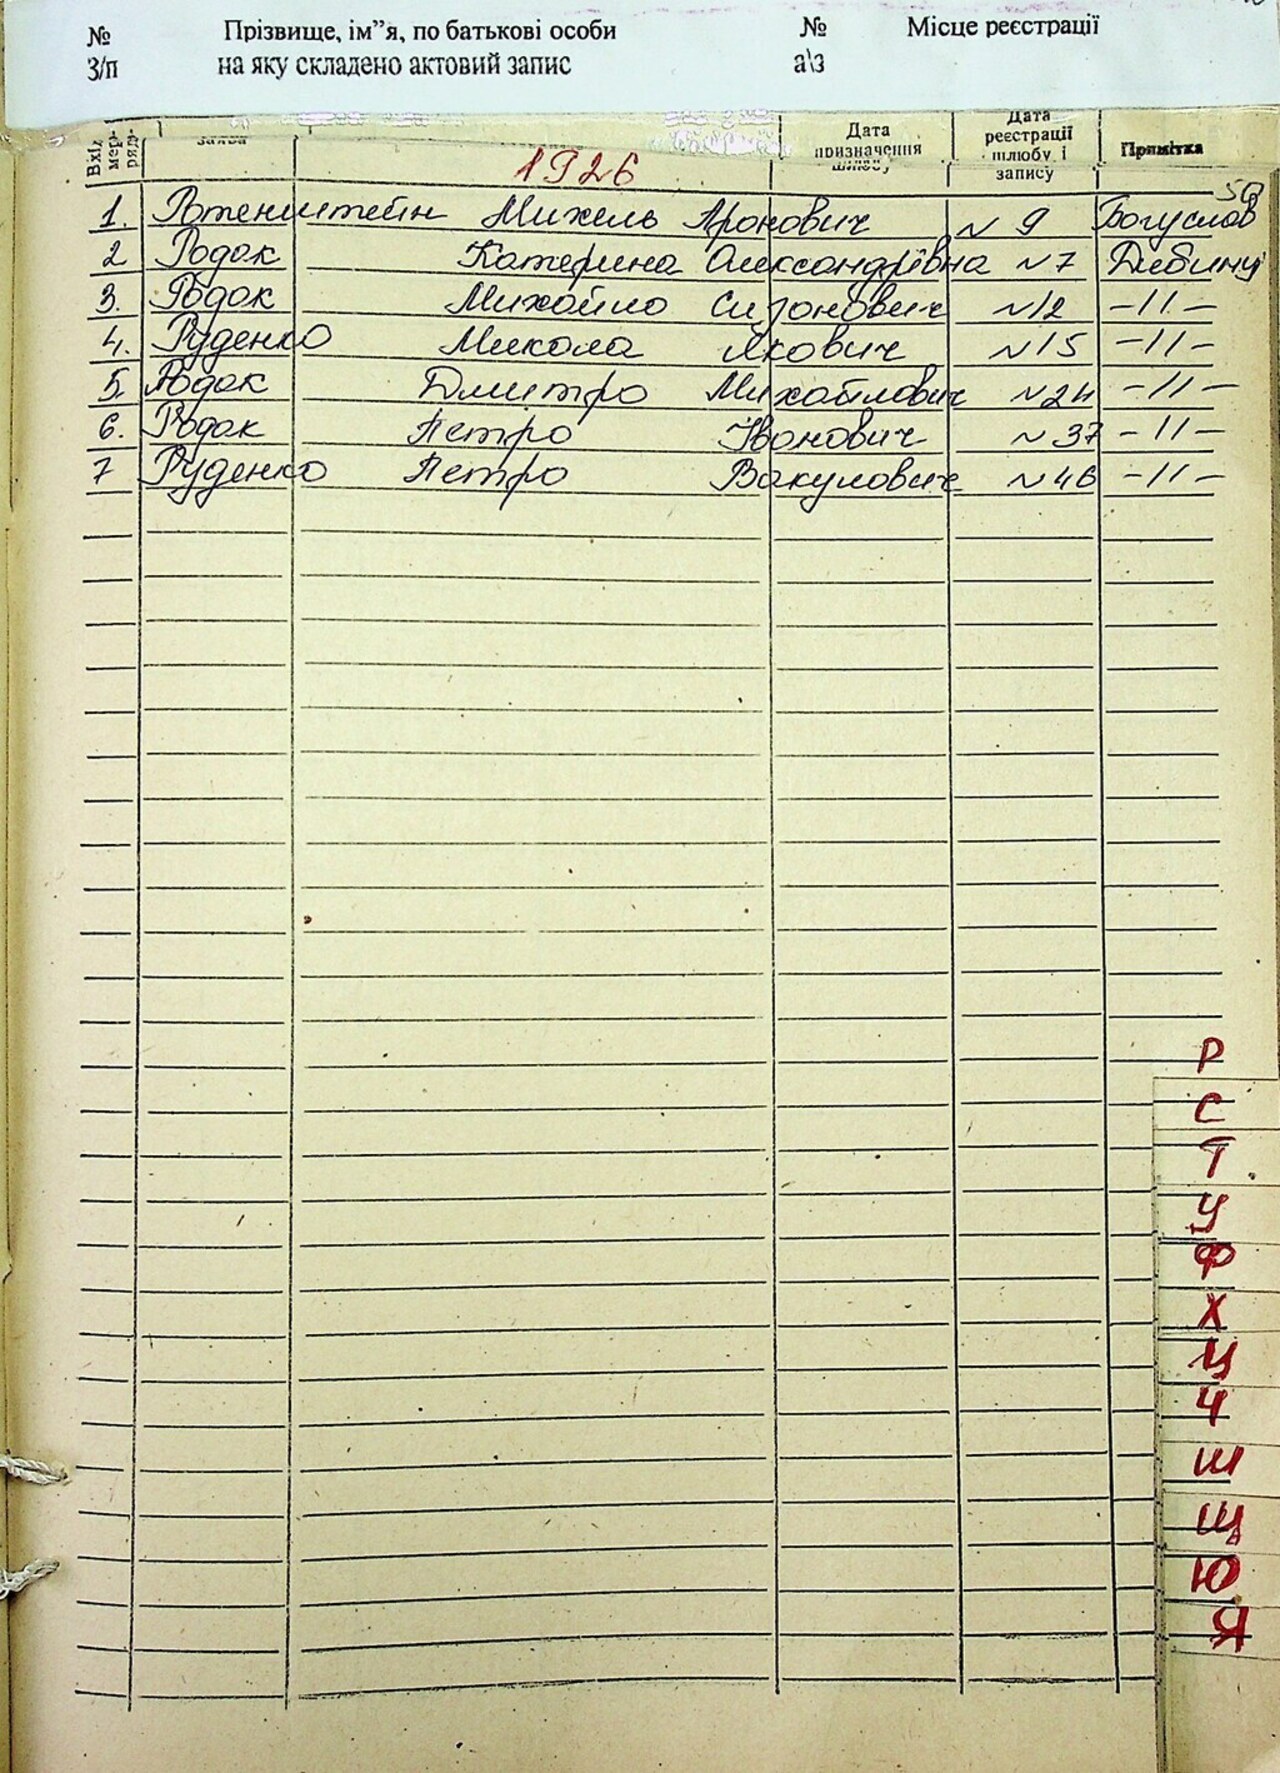 № Прізвище, ім”я, по батькові особи № Місце реєстрації
З/п на яку складено актовий запис а\з
Вхід Дата Дата
призначення реєстрації Примітка
шлюбу шлюбу і
запису
1926
50
1. Ротенштейн Михель Аронович № 9 Богуслав
2 Родак Катерина Олександрівна № 7 Дибинці
3. Родак Михайло Сизонович № 12 -11-
4. Руденко Микола Якович № 15 -11-
5. Родак Дмитро Михайлович № 24 -11-
6. Родак Петро Іванович № 37 -11-
7 Руденко Петро Вакулович № 46 -11-
Р
С
Т
У
Ф
Х
Ц
Ч
Ш
Щ
Ю
Я